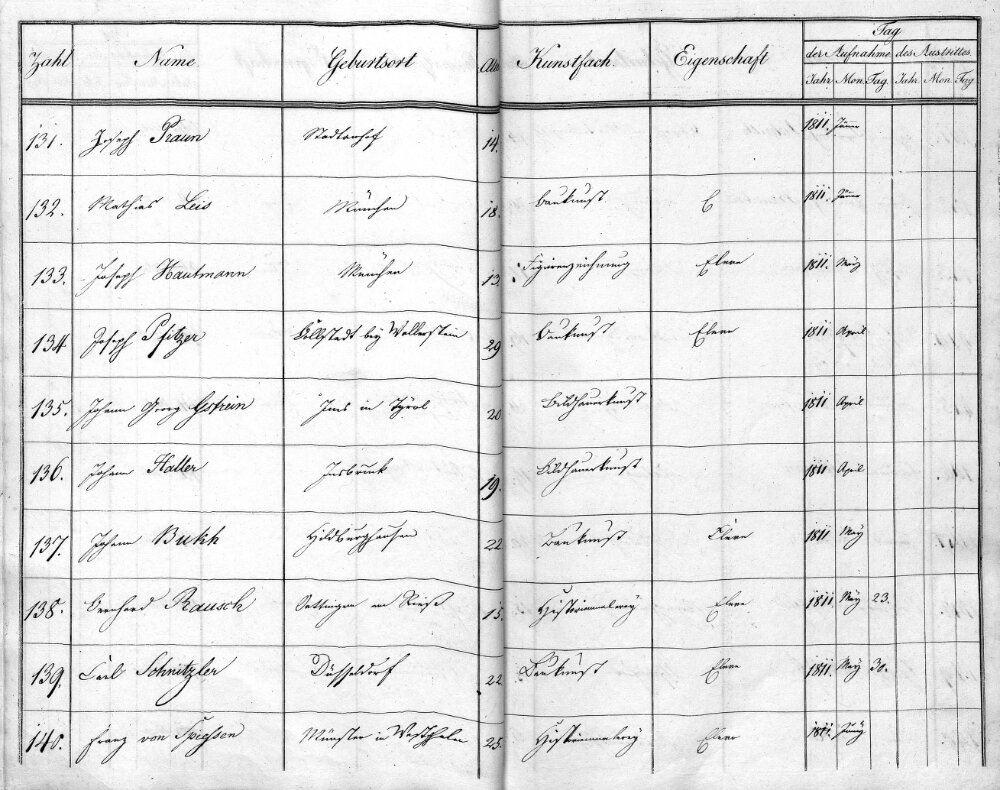 Tag
Zahl Name. Geburtsort Kunstfach. Eigenschaft der Aufnahme des Austrittes.
Jahr Mon. Tag. Jahr. Mon. Tag
131. Joseph Praun Stadtamhof 14. 1811. Jänner
132. Mathias Leis München 18. Baukunst E 1811. Jänner
133. Joseph Hautmann München 13. Figurenzeichnung Eleve 1811. März
134 Joseph Pfitzer bey Wallerstein 29 Baukunst Eleve 1811 April
135. Johann Georg Gstrein Ims in Tyrol 20 Bildhauerkunst 1811 April
136. Johann Haller Insbruck 19. Bildhauerkunst 1811 April
137. Johann Bukh Hildburghausen 22 Baukunst Eleve 1811 May
138. Bernhard Rausch Oettingen im Rieß 15. Historienmalerey Eleve 1811. May 23.
139. Carl Schnitzler Düsseldorf 22 Baukunst Eleve 1811. May 30.
140. Franz von Spiessen Münster in Westphalen 25. Historienmalerey Eleve 1811. Juny